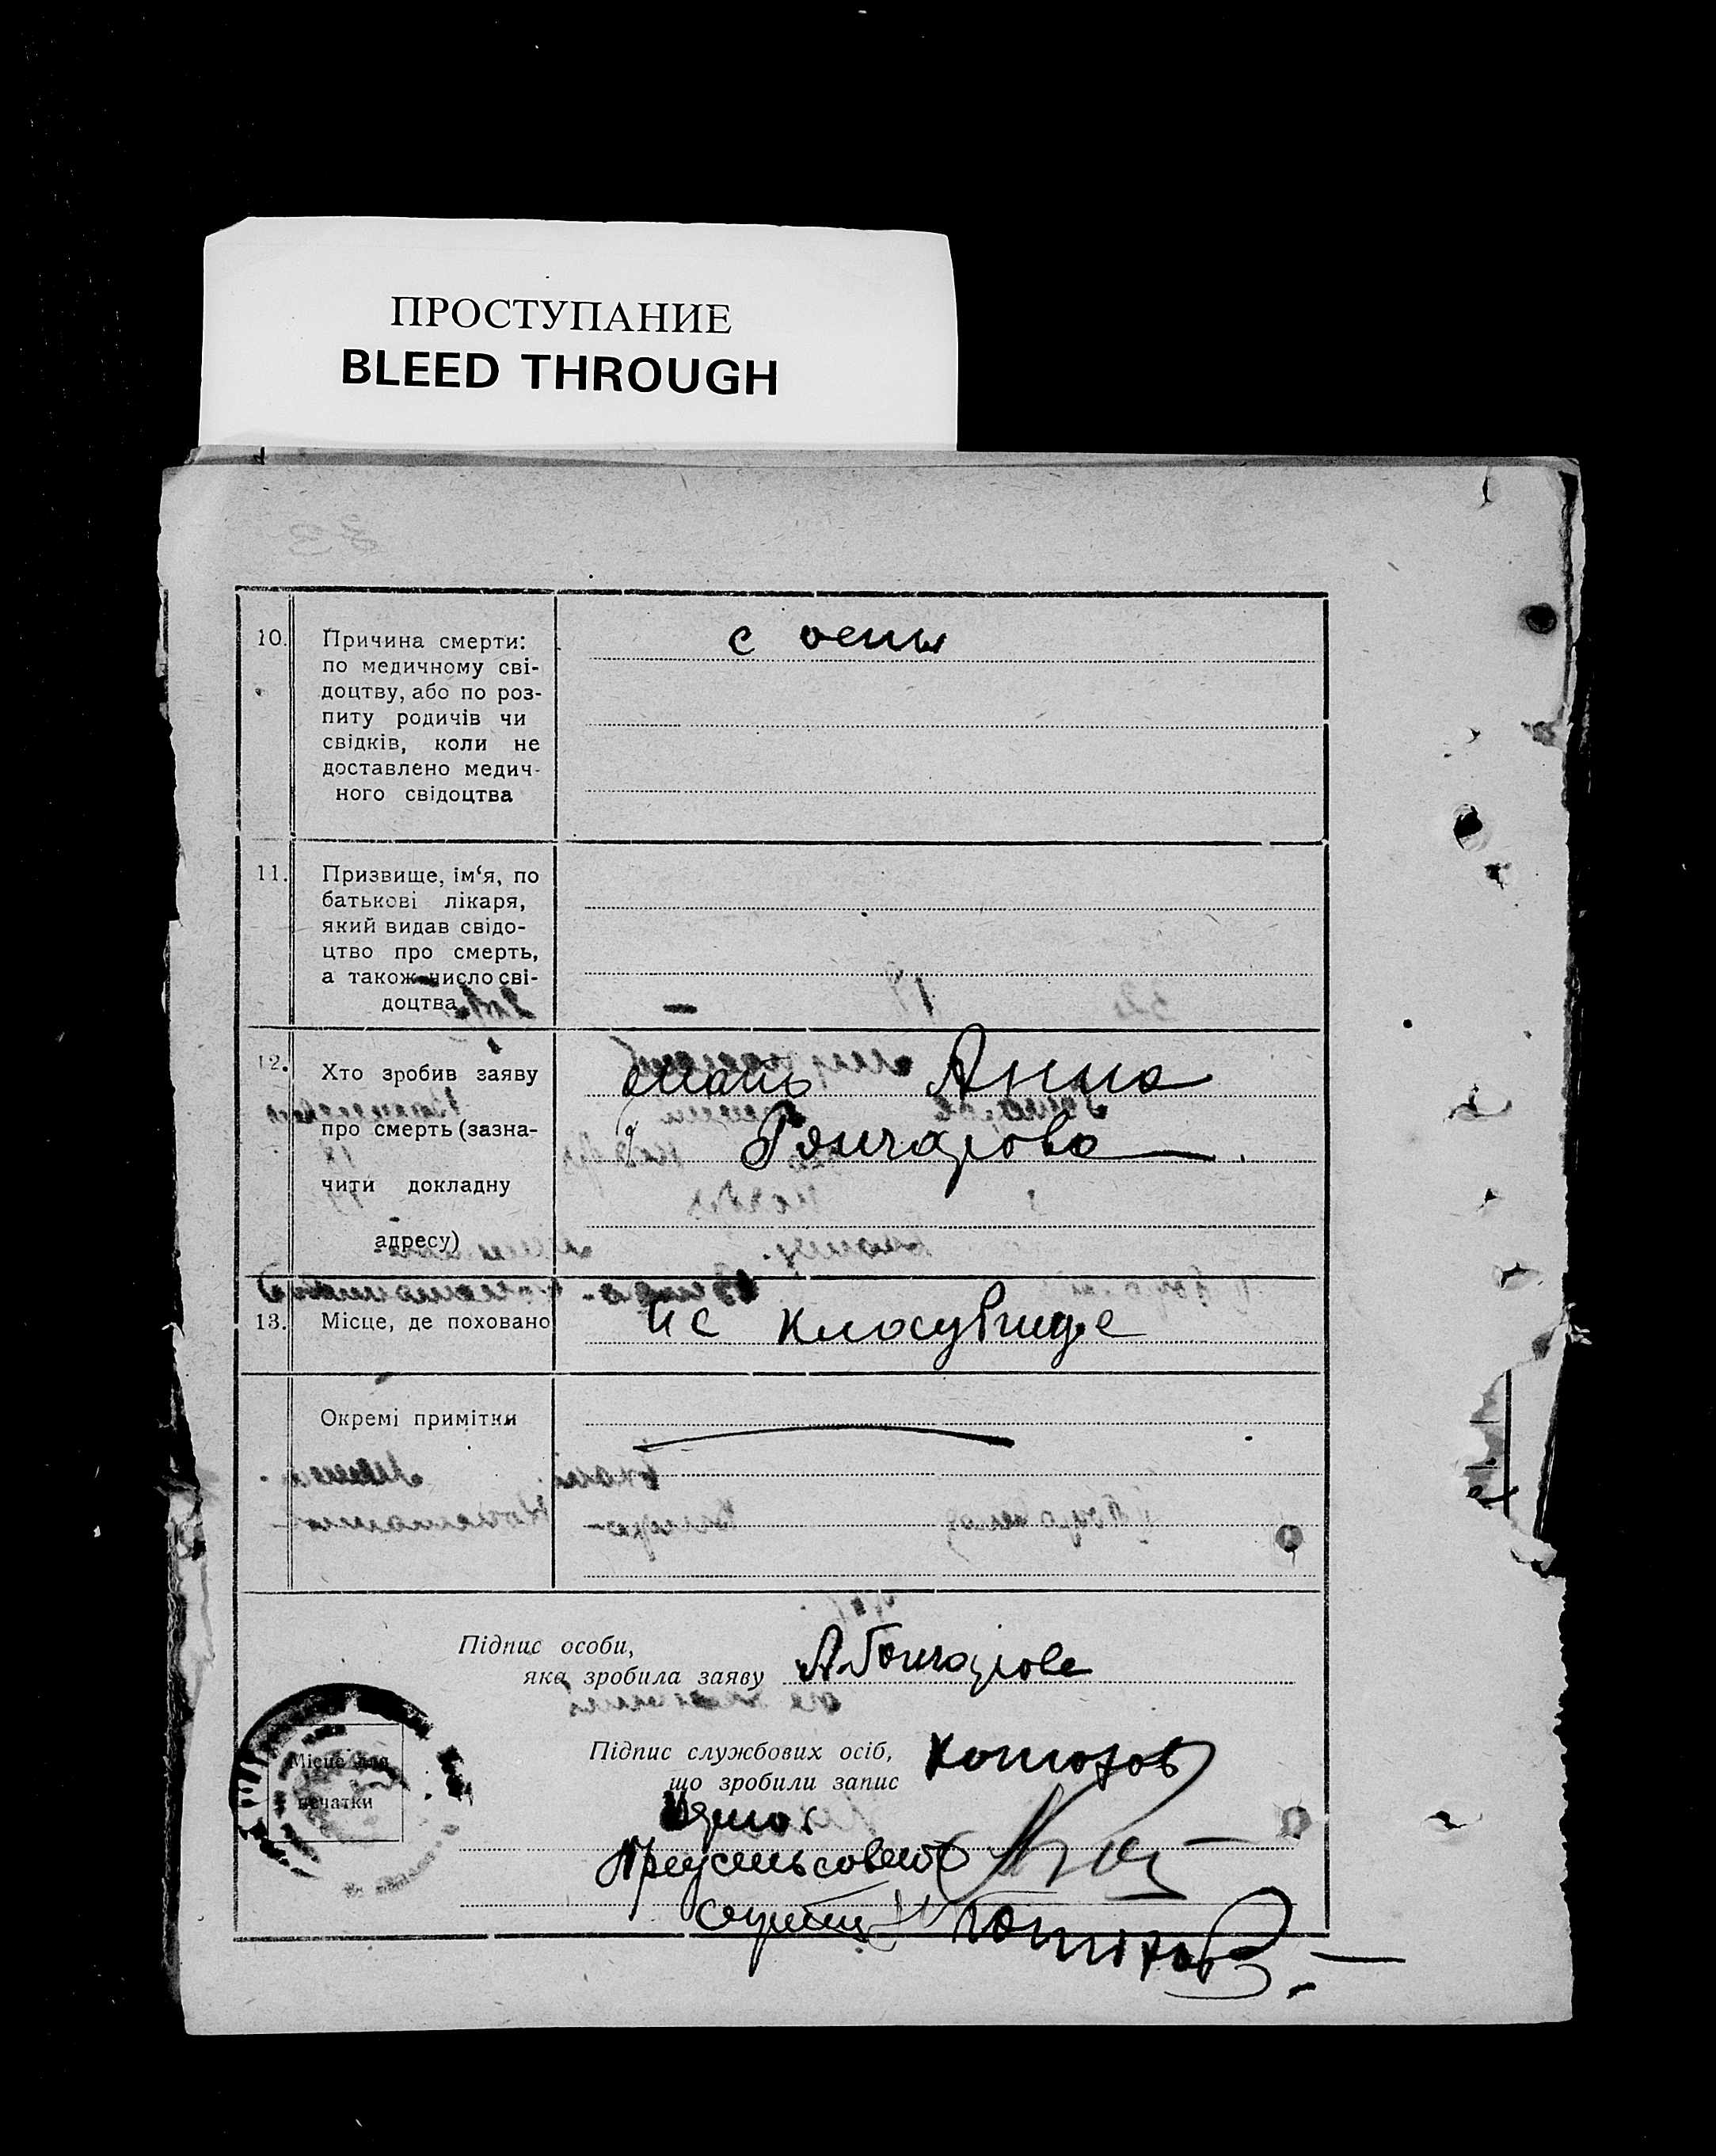 ПРОСТУПАНИЕ
BLEED THROUGH
10. Причина смерти:
по медичному сві-
доцтву, або по роз-
питу родичів чи
свідків, коли не
доставлено медич-
ного свідоцтва
с оспы
11. Призвище, ім‘я, по
батькові лікаря,
який видав свідо-
цтво про смерть,
а також число сві-
доцтва
12. Хто зробив заяву
про смерть (зазна-
чити докладну
адресу)
мать Анна
Гончарова
13. Місце, де поховано
на кладувище
Окремі примітки
Підпис особи,
яка зробила заяву А Гончарова
Підпис службових осіб,
що зробили запис
Місце для
печатки